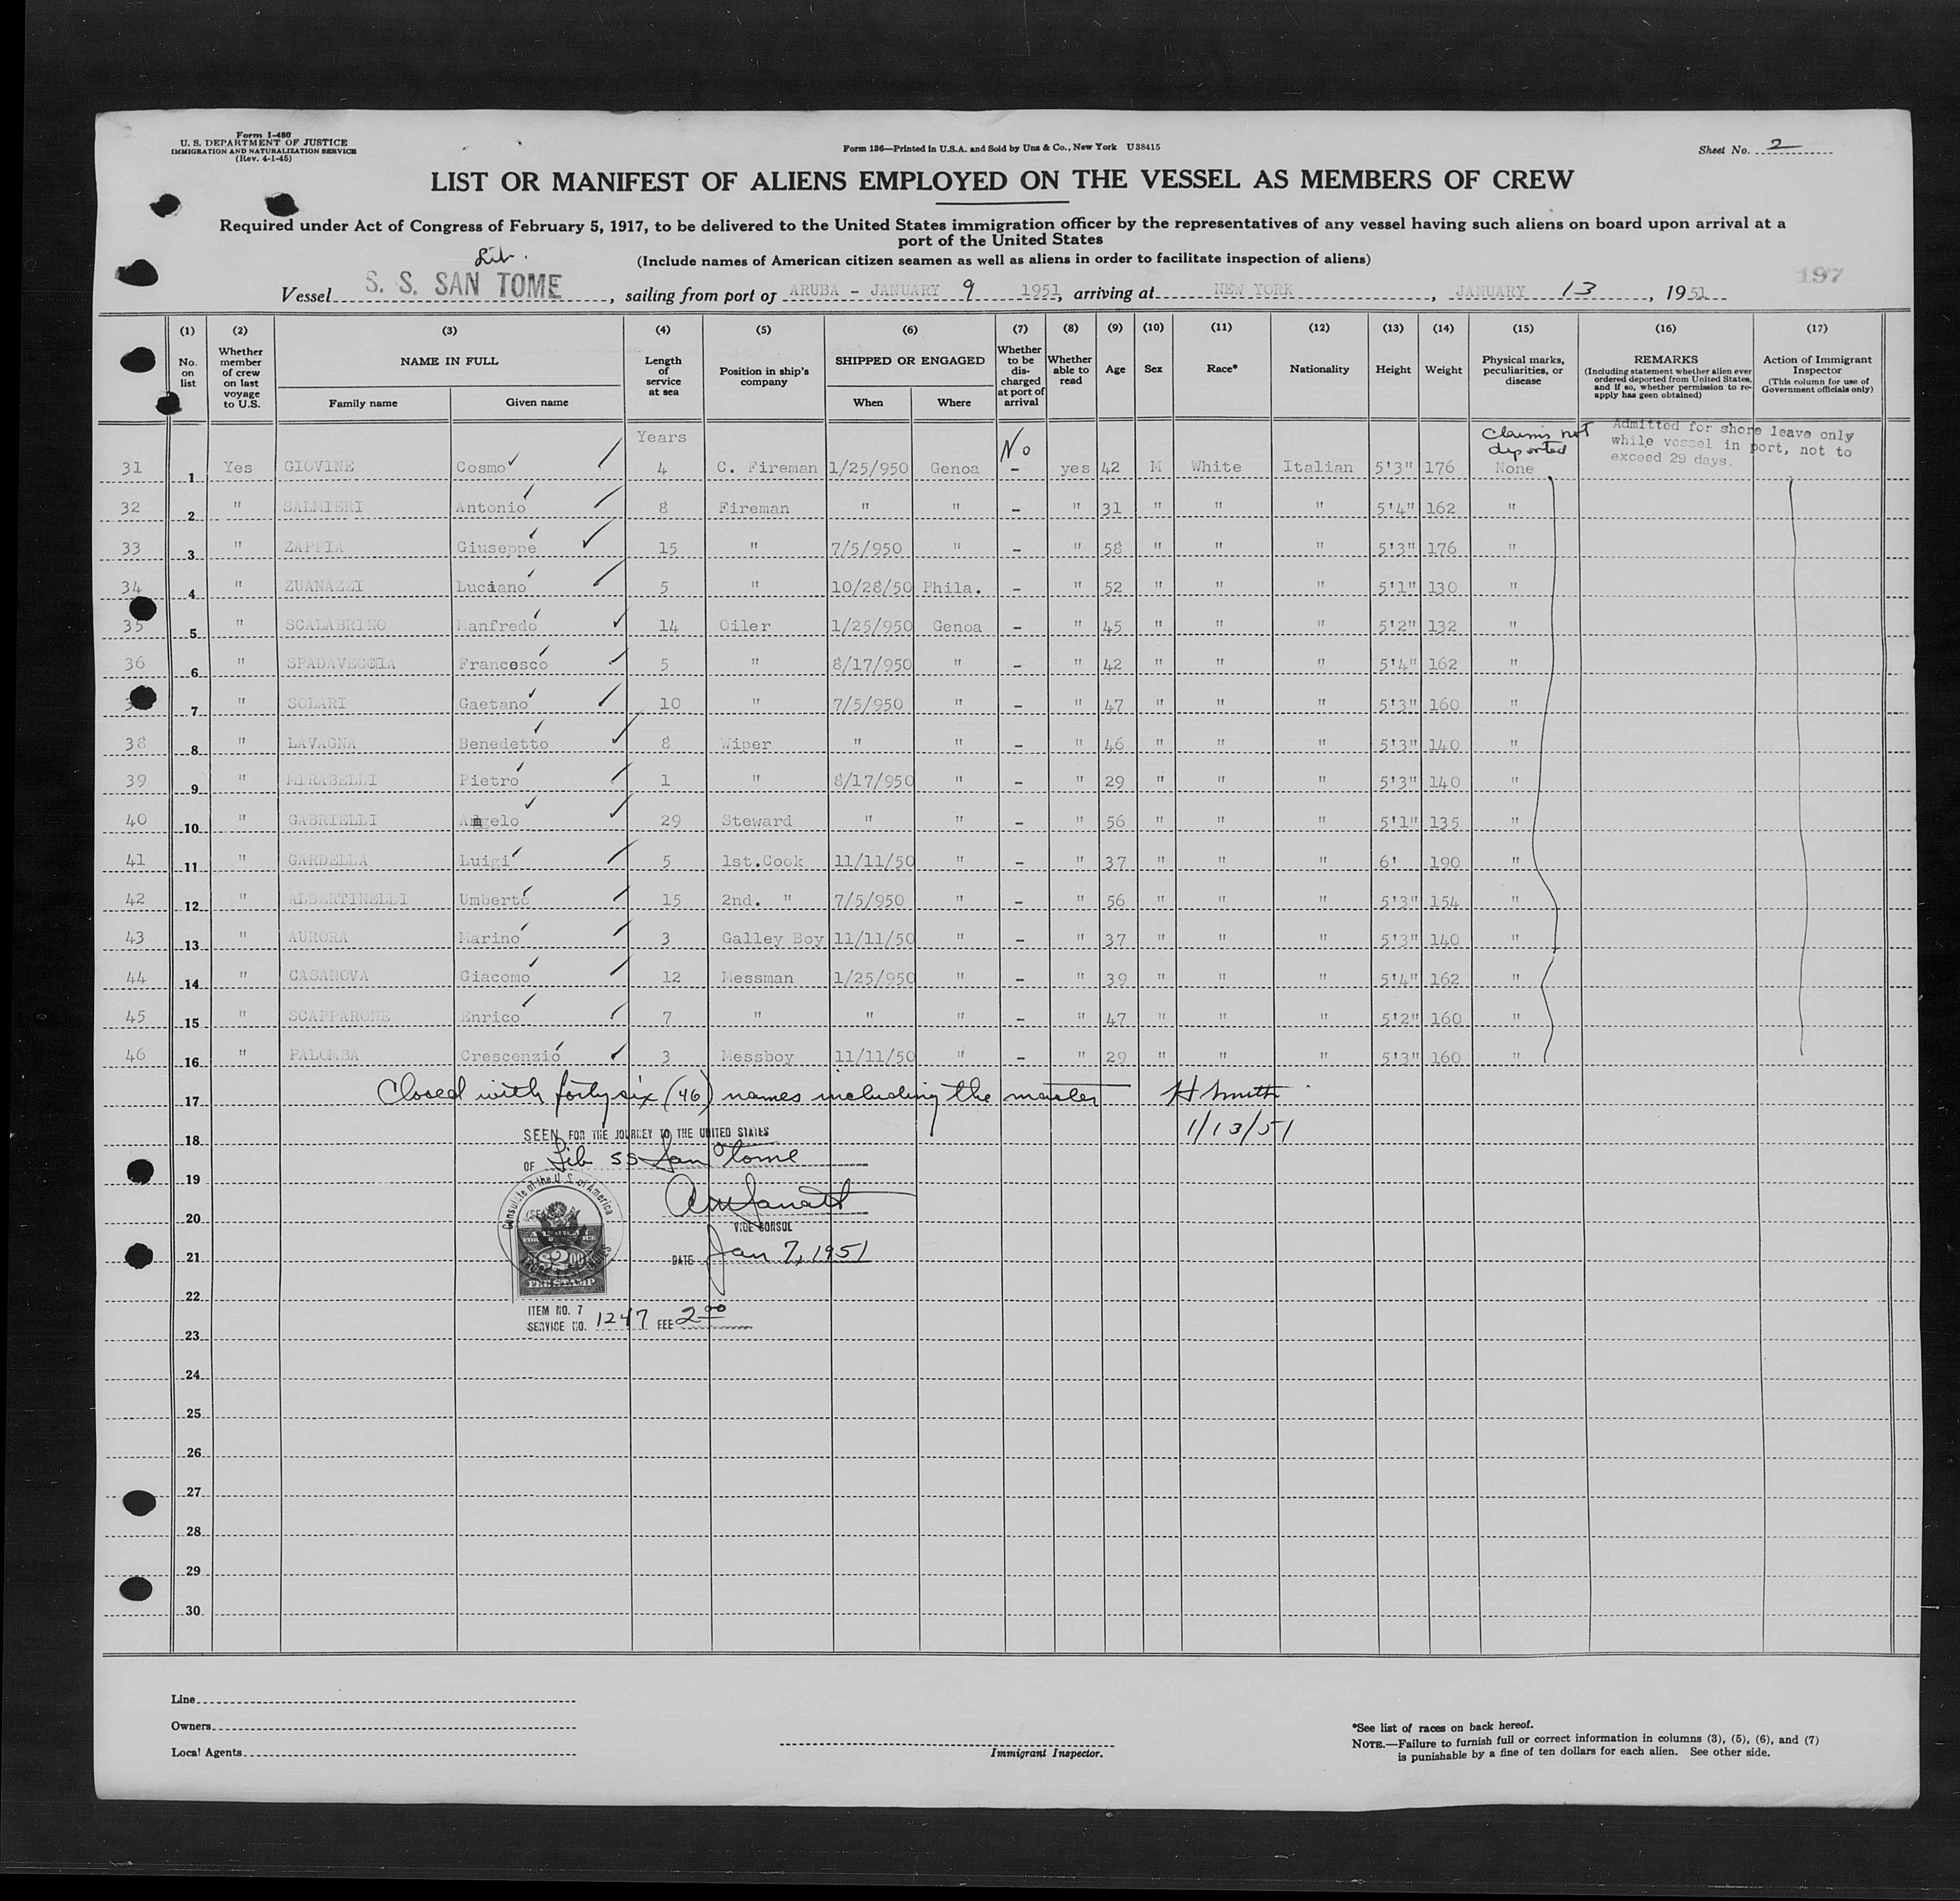 Form I-480
U. S. DEPARTMENT OF JUSTICE
IMMIGRATION AND NATURALIZATION SERVICE
(Rev. 4-1-45)
Form 136—Printed in U.S.A. and Sold by Unz & Co., New York U38415
Sheet No. 2
LIST OR MANIFEST OF ALIENS EMPLOYED ON THE VESSEL AS MEMBERS OF CREW
Required under Act of Congress of February 5, 1917, to be delivered to the United States immigration officer by the representatives of any vessel having such aliens on board upon arrival at a
port of the United States
(Include names of American citizen seamen as well as aliens in order to facilitate inspection of aliens)
Lib.
197
Vessel S. S. SAN TOME, sailing from port of ARUBA - JANUARY 9 1951, arriving at NEW YORK, JANUARY 13, 1951
(1) (2) (3) (4) (5) (6) (7) (8) (9) (10) (11) (12) (13) (14) (15) (16) (17)
No. on list
Whether member of crew on last voyage to U.S.
NAME IN FULL
Family name
Given name
Length of service at sea
Position in ship's company
SHIPPED OR ENGAGED
When
Where
Whether to be discharged at port of arrival
Whether able to read
Age
Sex
Race*
Nationality
Height
Weight
Physical marks, peculiarities, or disease
REMARKS
(Including statement whether alien ever ordered deported from United States, and if so, whether permission to re-apply has geen obtained)
Action of Immigrant Inspector
(This column for use of Government officials only)
Years
No
Claims not deported
Admitted for shore leave only
while vessel in port, not to
exceed 29 days.
31 1 Yes GIOVINE Cosmo 4 C. Fireman 1/25/950 Genoa - yes 42 M White Italian 5'3" 176 None
32 2 " SALMIERI Antonio 8 Fireman " " - " 31 " " " 5'4" 162 "
33 3 " ZAPPIA Giuseppe 15 " 7/5/950 " - " 58 " " " 5'3" 176 "
34 4 " ZUANAZZI Luciano 5 " 10/28/50 Phila. - " 52 " " " 5'1" 130 "
35 5 " SCALABRINO Manfredo 14 Oiler 1/25/950 Genoa - " 45 " " " 5'2" 132 "
36 6 " SPADAVECCHIA Francesco 5 " 8/17/950 " - " 42 " " " 5'4" 162 "
7 " SOLARI Gaetano 10 " 7/5/950 " - " 47 " " " 5'3" 160 "
38 8 " LAVAGNA Benedetto 8 Wiper " " - " 46 " " " 5'3" 140 "
39 9 " MIRABELLI Pietro 1 " 8/17/950 " - " 29 " " " 5'3" 140 "
40 10 " GABRIELLI Angelo 29 Steward " " - " 56 " " " 5'1" 135 "
41 11 " GARDELLA Luigi 5 1st.Cook 11/11/50 " - " 37 " " " 6' 190 "
42 12 " ALBERTINELLI Umberto 15 2nd. " 7/5/950 " - " 56 " " " 5'3" 154 "
43 13 " AURORA Marino 3 Galley Boy 11/11/50 " - " 37 " " " 5'3" 140 "
44 14 " CASANOVA Giacomo 12 Messman 1/25/950 " - " 39 " " " 5'4" 162 "
45 15 " SCAPPARONE Enrico 7 " " " - " 47 " " " 5'2" 160 "
46 16 " PALOMBA Crescenzio 3 Messboy 11/11/50 " - " 29 " " " 5'3" 160 "
17 Closed with forty six (46) names including the master H Smith
1/13/51
18 SEEN FOR THE JOURNEY TO THE UNITED STATES
OF Lib SS San Tome
19
Consulate of the U. S. of America
20
VICE CONSUL
21 DATE Jan 7, 1951
$2.00
FEE STAMP
22
ITEM NO. 7
SERVICE NO. 1247 FEE 2.00
23
24
25
26
27
28
29
30
Line
Owners
Local Agents
Immigrant Inspector.
*See list of races on back hereof.
NOTE.—Failure to furnish full or correct information in columns (3), (5), (6), and (7)
is punishable by a fine of ten dollars for each alien. See other side.